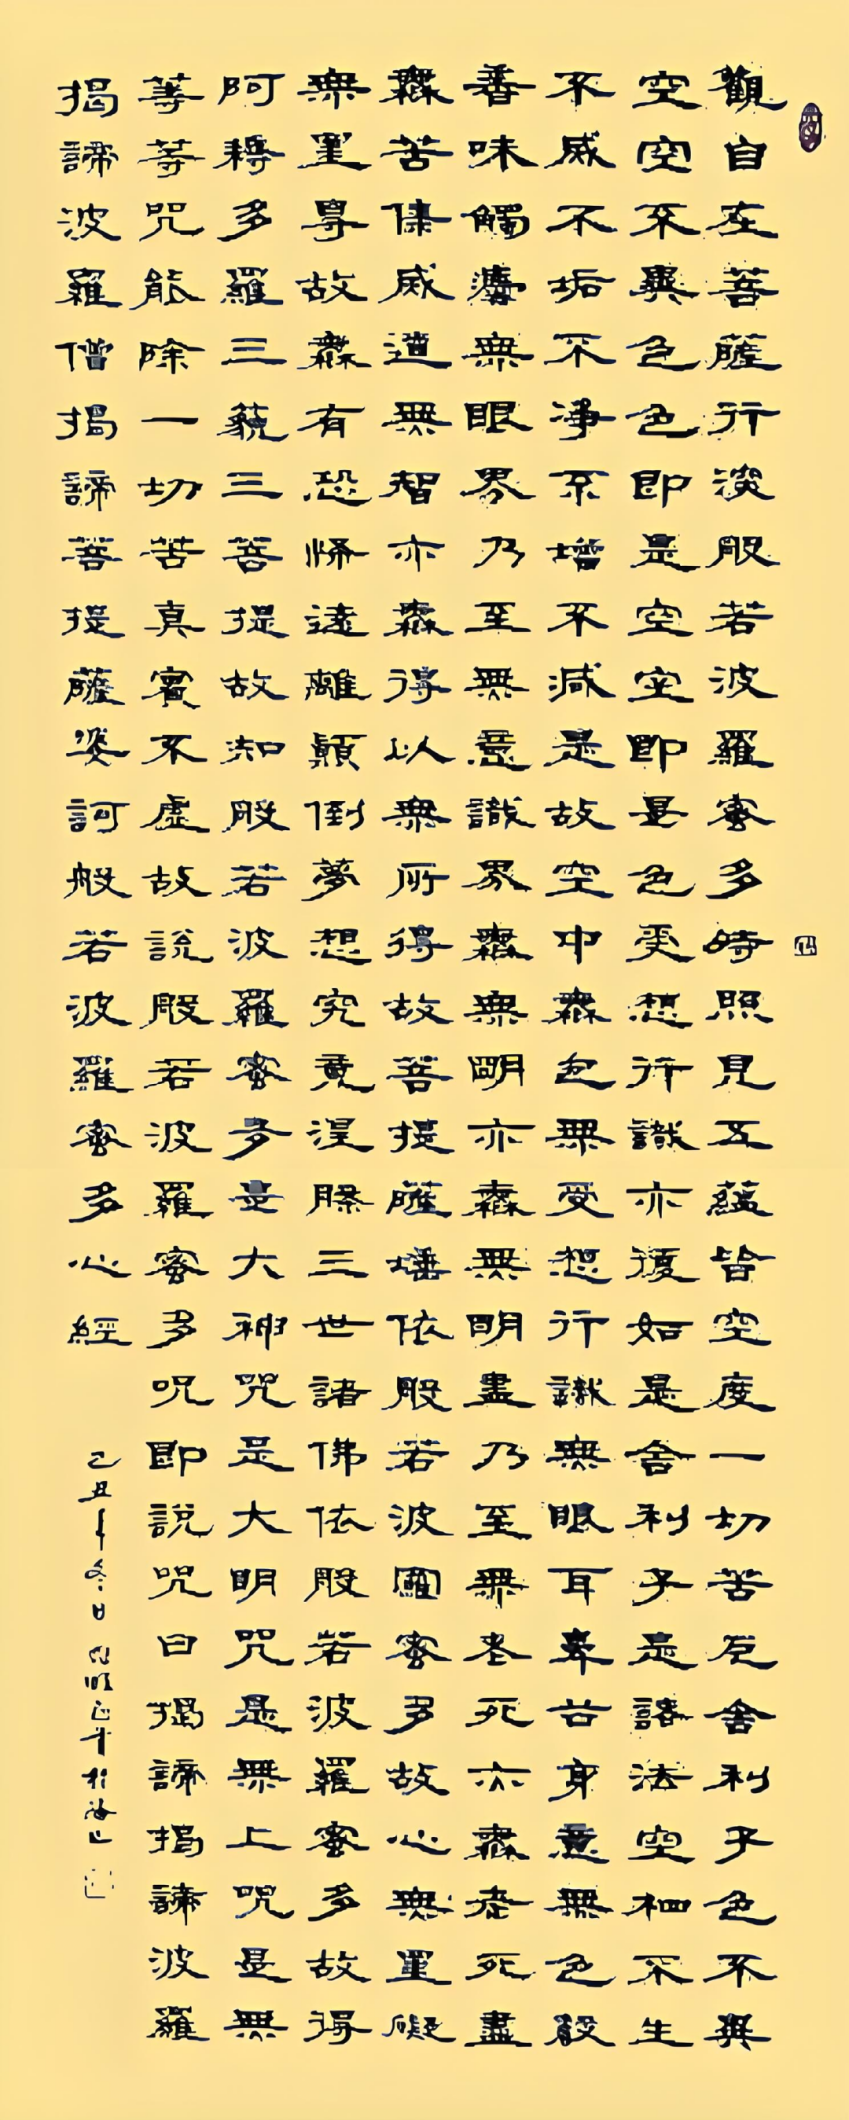 觀自在菩薩行深般若波羅蜜多時照見五蘊皆空度一切苦厄舍利子色不異
空空不異色色即是空空即是色受想行識亦復如是舍利子是諸法空相不生
不滅不垢不淨不增不減是故空中無色無受想行識無眼耳鼻舌身意無色聲
香味觸法無眼界乃至無意識界無無明亦無無明盡乃至無老死亦無老死盡
無苦集滅道無智亦無得以無所得故菩提薩埵依般若波羅蜜多故心無罣礙
無罣㝵故無有恐怖遠離顛倒夢想究竟涅槃三世諸佛依般若波羅蜜多故得
阿耨多羅三藐三菩提故知般若波羅蜜多是大神咒是大明咒是無上咒是無
等等咒能除一切苦真實不虛故說般若波羅蜜多呪即說咒曰揭諦揭諦波羅
揭諦波羅僧揭諦菩提薩婆訶般若波羅蜜多心經
己丑年冬日 於海上